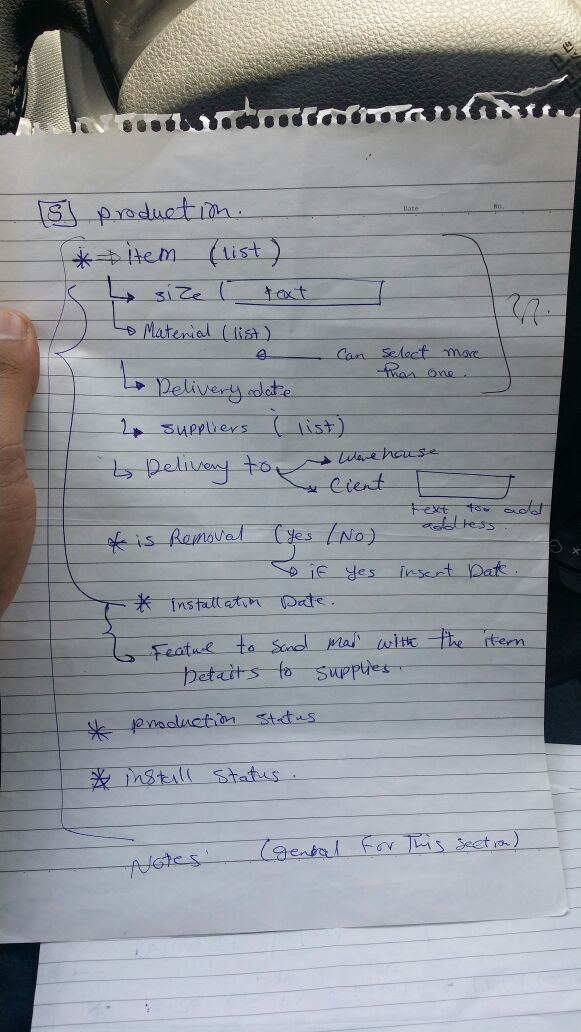 [5] production.
Date No.
* ⇒ item (list)
↳ size ( text
↳ Material (list)
Can select more
than one.
↳ Delivery date
↳ suppliers (list)
↳ Delivery to → Warehouse
→ Cient
text too add
address.
* is Removal (Yes / No)
↳ if yes insert Date.
* installation Date.
↳ Feature to Send mail with the item
Details to supplies.
* production status
* install status.
Notes: (genral For This section)